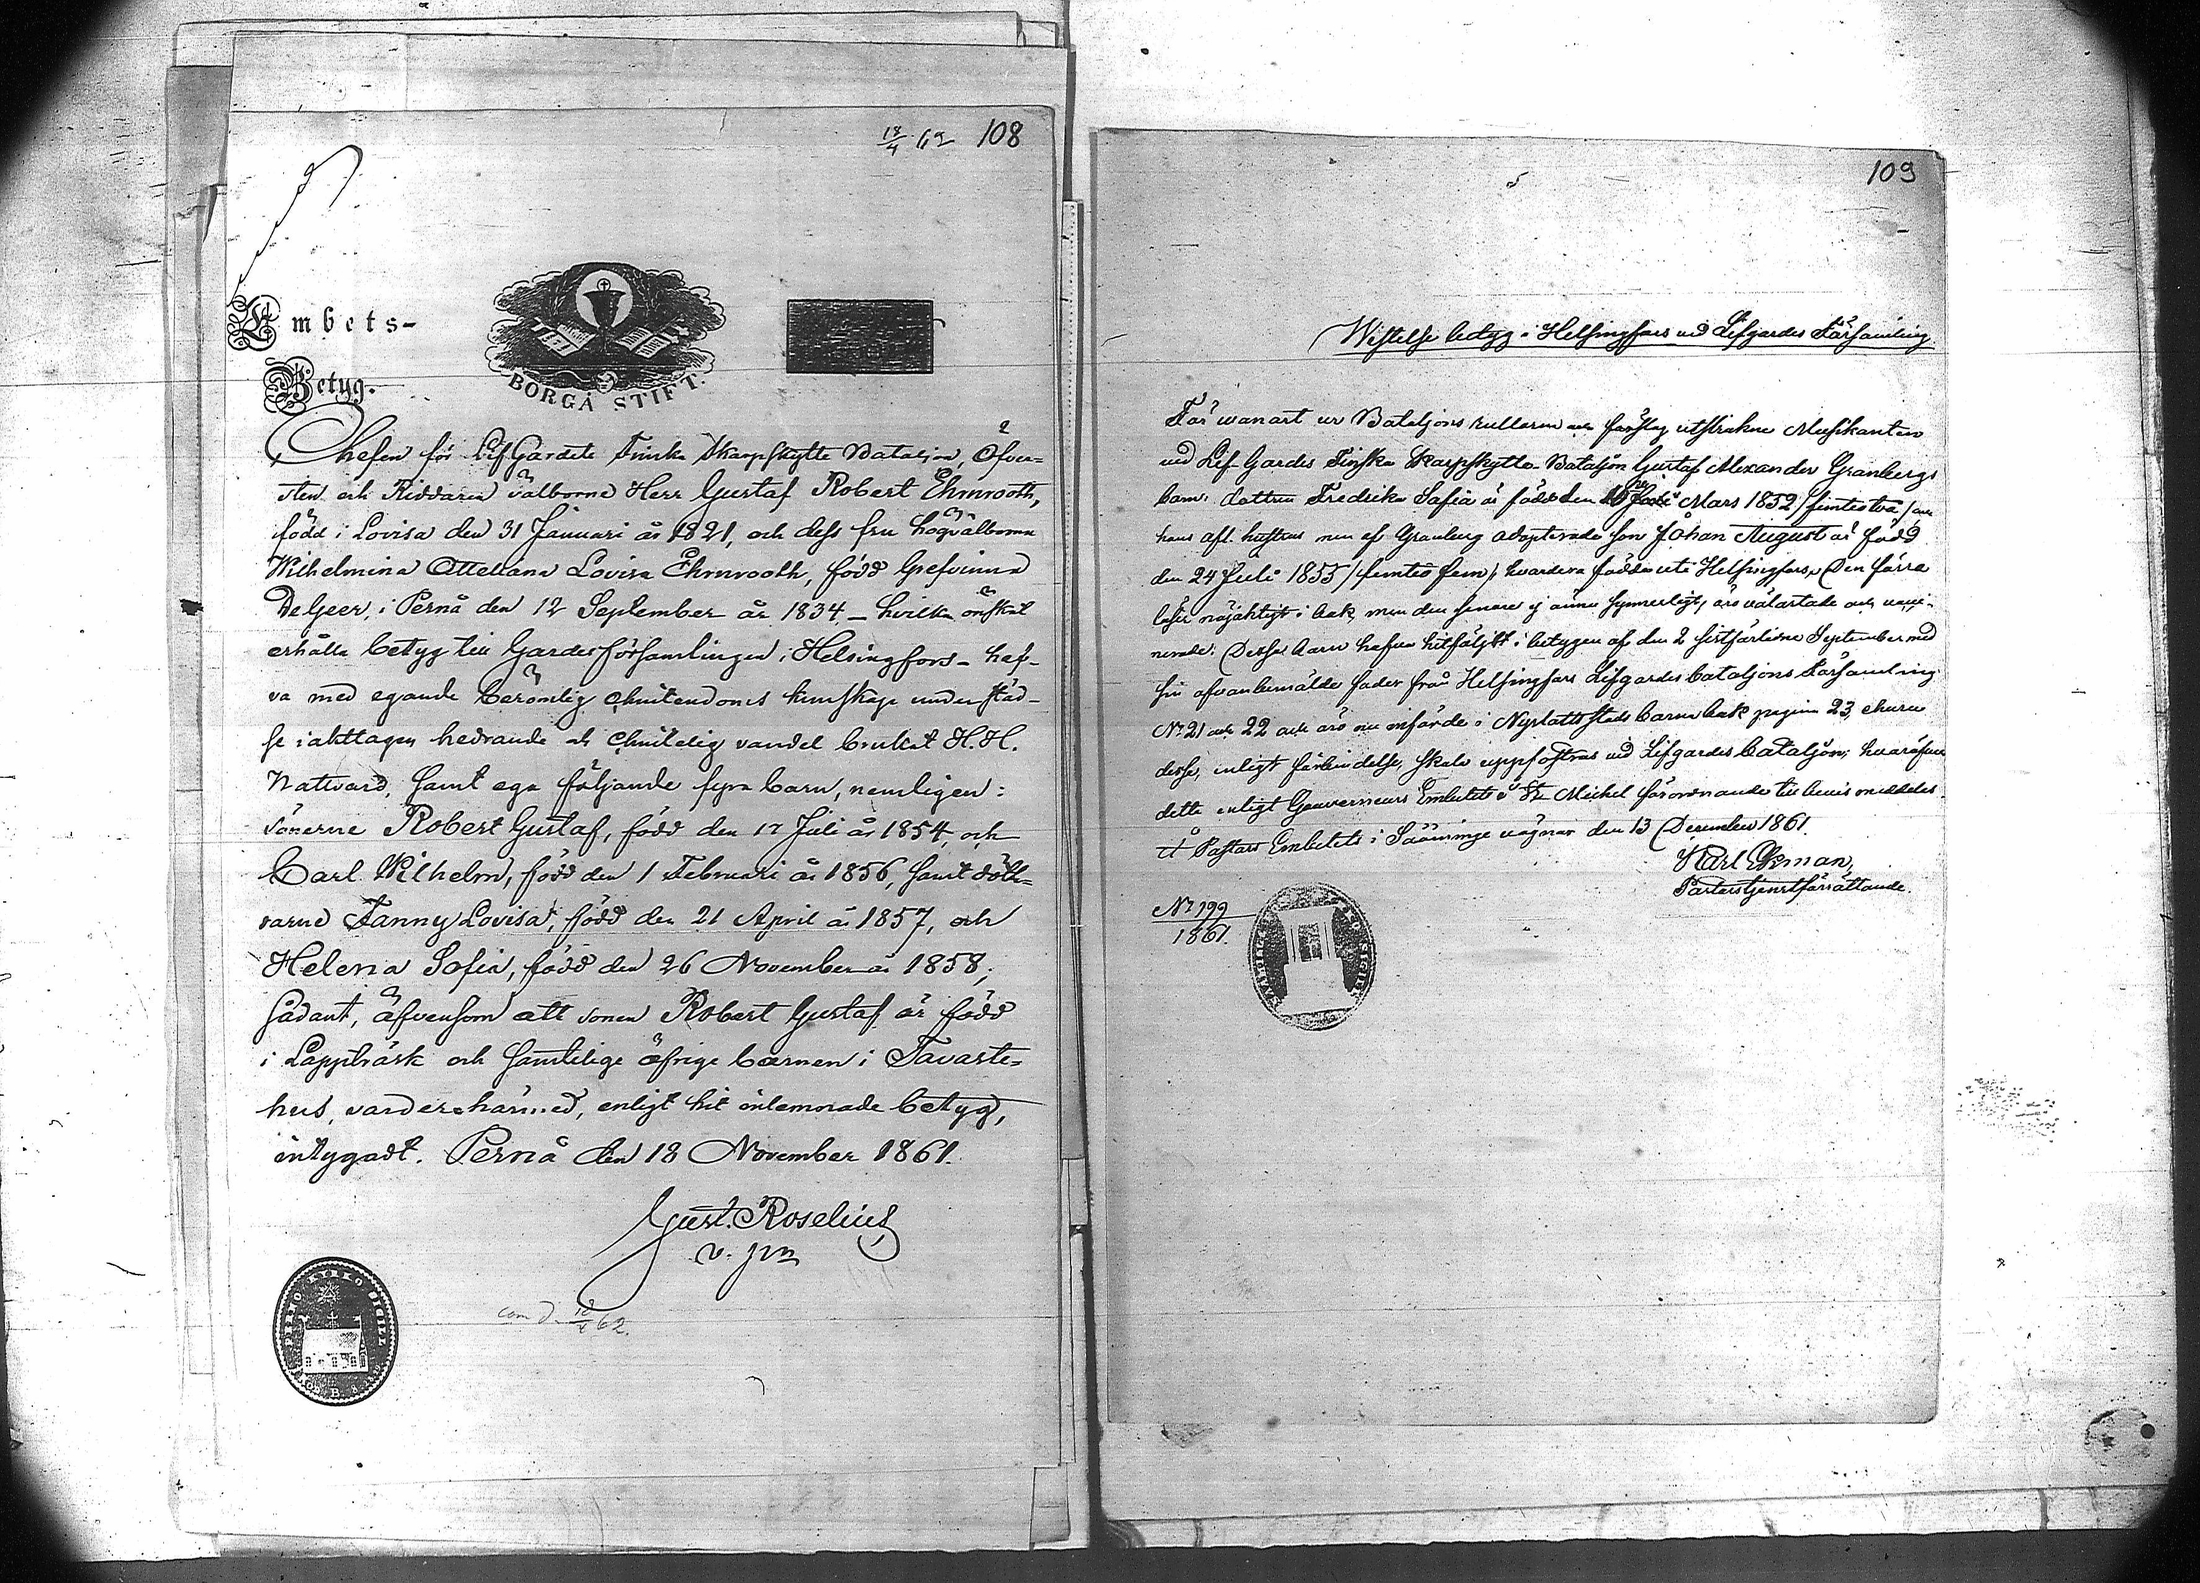 18/4 62 108
Embets-
Betyg.
BORGÅ STIFT.
Chefen för LifGardets Finska Skarpskytte Bataljon, Öfver-
sten och Riddaren välborne Herr Gustaf Robert Ehrnrooth,
född i Lovisa den 31 Januari år 1821, och dess fru högvälborna
Wilhelmina Lovisa Ehrnrooth, född Grefvinna
DeGeer, i Pernå den 12 September år 1834 – hvilka önskat
erhålla betyg till Gardesförsamlingen i Helsingfors – haf-
va med egande berömlig christendoms kunskap
iakttagen hedrande och christelig vandel brukat H.H.
Nattvard, samt ega följande fyra barn, nemligen:
sönerne Robert Gustaf, född den 17 Juli år 1854, och
Carl Wilhelm, född den 1 Februari år 1856, samt dött-
rarne Fanny Lovisa, född den 21 April år 1857, och
Helena Sofia, född den 26 November år 1858;
sådant, äfvensom att sonen Robert Gustaf är född
i Lappträsk och samtelige öfrige barnen i Tavaste-
hus, varder härmed, enligt hit inlemnade betyg,
intygadt. Pernå den 18 November 1861.
Gust. Roselius
v. pm
PERNO KYRKO SIGILL
18/4 62.
109
Wistelse betyg i Helsingfors vid Lifgardes Församling.
Förwanart ur Bataljons rullorna och förslag utstrukne Musikanten
vid Lif-Gardes Finska Skarpskytte-Bataljon Gustaf Alexander Granbergs
barn: dottren Fredrika Sofia är född den Mars 1852 /femtiotvå/ och
hans afl. hustrus men af Granberg adopterade son Johan August är född
den 24 Juli 1855 /femtiofem/; hvardera födda uti Helsingfors. Den förra
läser nöjaktigt i bok, men den senare ej ännu synnerligt, äro välartade och vacci-
nerade. Dessa barn hafva hitföljt i betygen af den 2 sistförlidne September med
sin ofvanbemälde fader från Helsingfors Lifgardes bataljons Församling
No 21 och 22 och äro nu införde i Nyslotts Stads barna bok pagina 23,
desse, enligt förbindelse, skola uppfostras vid Lifgardes bataljon; hvaröfver
detta enligt Gouverneurs Embetets i St Michel förordnande till bevis meddelas.
å Pastors Embetets i Sääminge vägnar den 13 December 1861.
Karl Ekman,
Pastorstjenstförrättande.
No 199
1861.